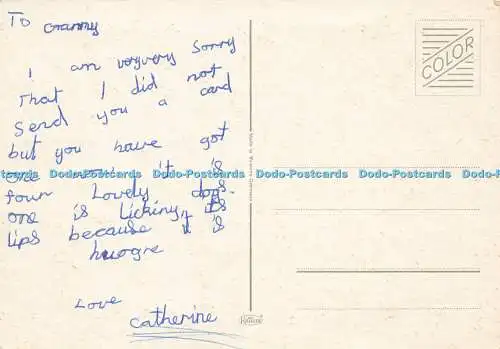 To Granny
I am veryvery sorry
That I did not
Send you a card
but you have got
one now it is
foun Lovely dogs.
one is licking its
lips because it is
huogre
Love
catherine
COLOR
Dodo-Postcards Dodo-Postcards Dodo-Postcards Dodo-Postcards Dodo-Postcards Dodo-Postcards